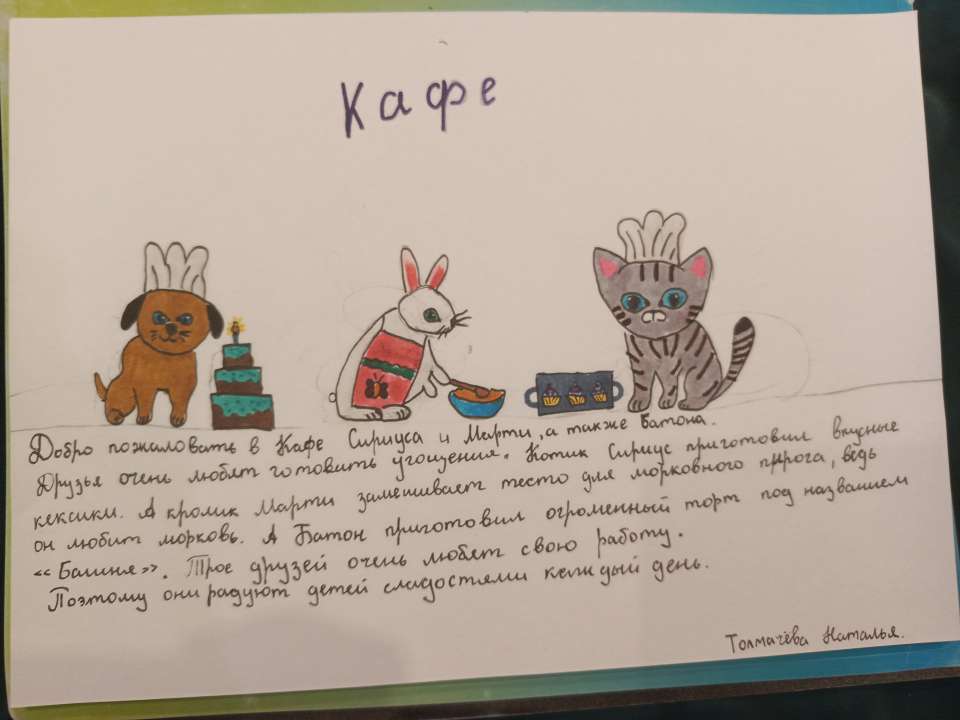 Кафе
Добро пожаловать в Кафе Сириуса и Марти, а также Батона.
Друзья очень любят готовить угощения. Котик Сириус приготовил вкусные
кексики. А кролик Марти замешивает тесто для морковного пирога, ведь
он любит морковь. А Батон приготовил огроменный торт под названием
«Башня». Трое друзей очень любят свою работу.
Поэтому они радуют детей сладостями каждый день.
Толмачёва Наталья.